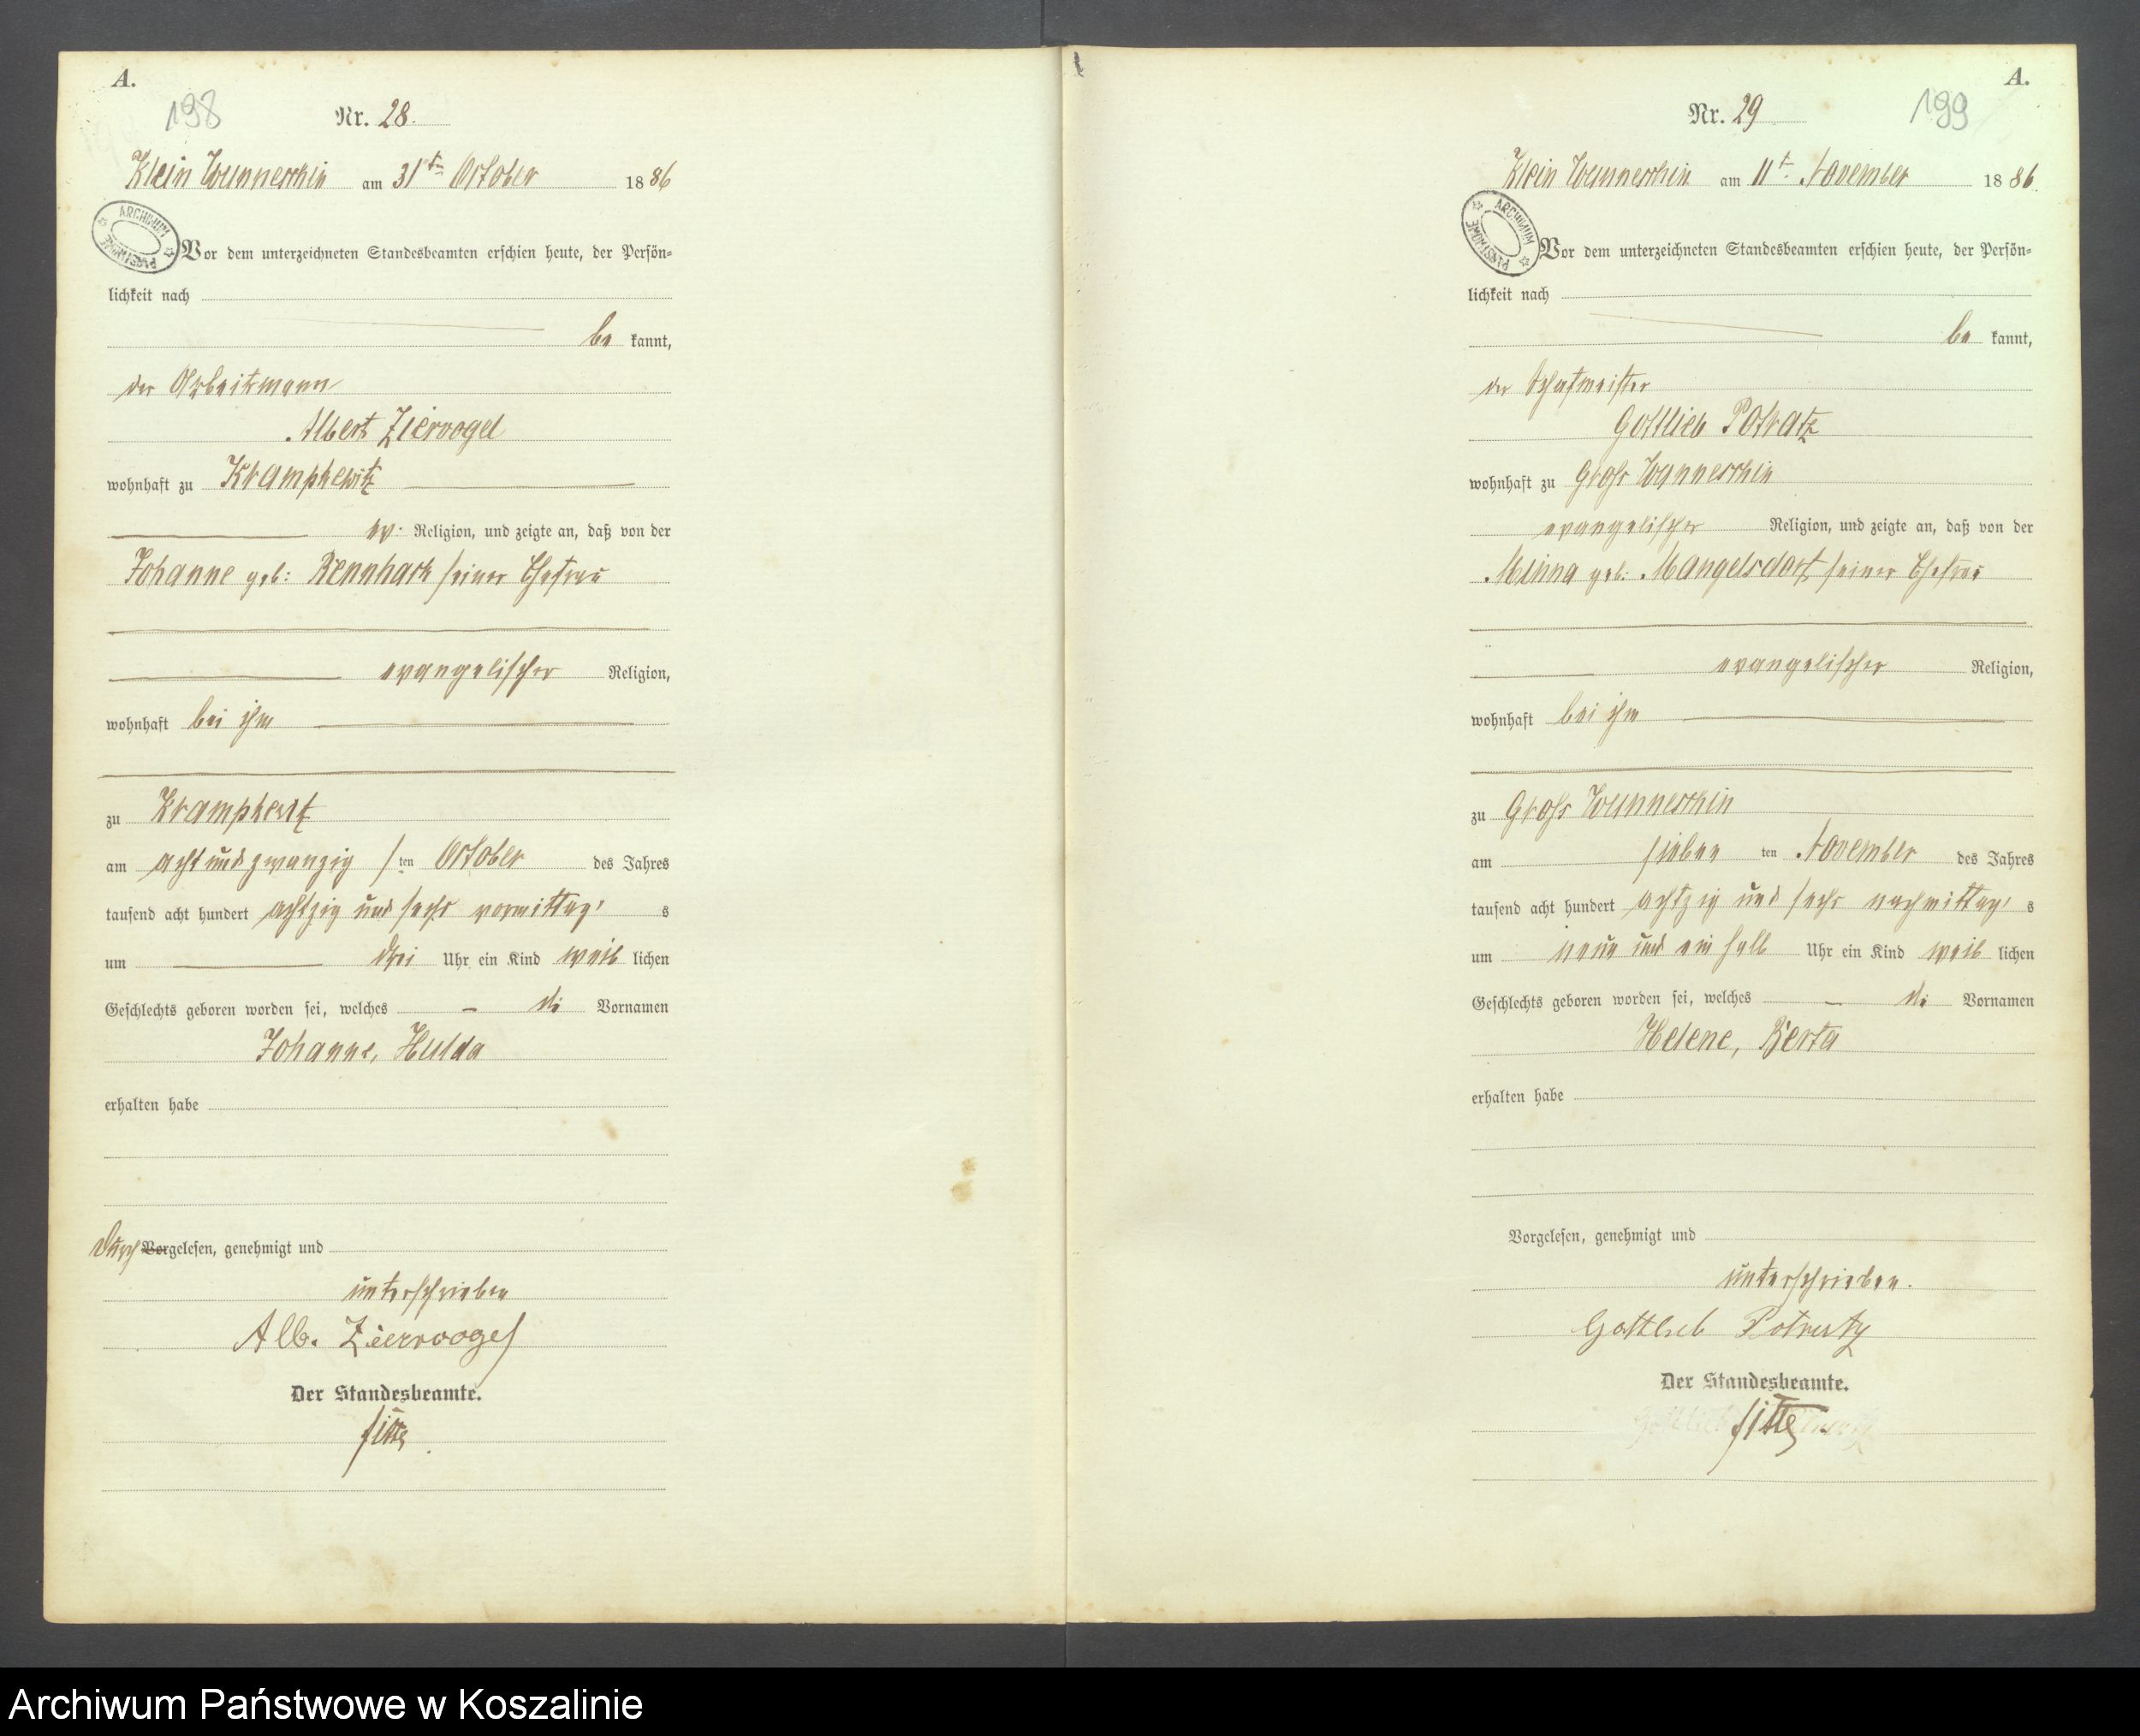 A.
198
Nr. 28.
Klein Wunneschin am 31ten October 1886
ARCHIWUM PAŃSTWOWE
Vor dem unterzeichneten Standesbeamten erschien heute, der Persön=
lichkeit nach
be kannt,
der Arbeitsmann
Albert Ziervogel
wohnhaft zu Krampkewitz
ev. Religion, und zeigte an, daß von der
Johanne geb: seiner Ehefrau
evangelischer Religion,
wohnhaft bei ihm
zu Krampkewitz
am acht und zwanzig sten October des Jahres
tausend acht hundert achtzig und sechs vormittags
um drei Uhr ein Kind weib lichen
Geschlechts geboren worden sei, welches die Vornamen
Johanne, Hulda
erhalten habe
Durch Vorgelesen, genehmigt und
unterschrieben
Alb. Ziervogel
Der Standesbeamte.
A.
Nr. 29
199
Klein Wunneschin am 11t. November 1886.
ARCHIWUM PAŃSTWOWE
Vor dem unterzeichneten Standesbeamten erschien heute, der Persön=
lichkeit nach
be kannt,
der Schafmeister
Gottlieb Potratz
wohnhaft zu Groß Wunneschin
evangelischer Religion, und zeigte an, daß von der
Minna geb: Mangelsdorf seiner Ehefrau
evangelischer Religion,
wohnhaft bei ihm
zu Groß Wunneschin
am sieben ten November des Jahres
tausend acht hundert achtzig und sechs nachmittags
um neun und ein halb Uhr ein Kind weib lichen
Geschlechts geboren worden sei, welches die Vornamen
Helene, Berta
erhalten habe
Vorgelesen, genehmigt und
unterschrieben.
Gottlieb Potratz
Der Standesbeamte.
Archiwum Państwowe w Koszalinie